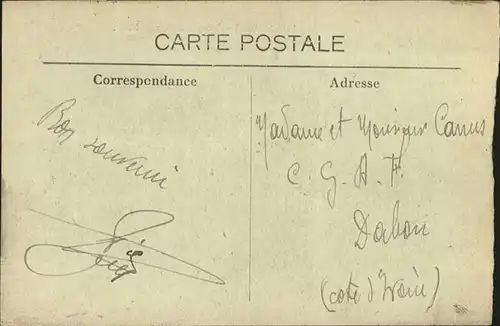 CARTE POSTALE
Correspondance
Adresse
Bon souvenir
Madame et Monsieur Camus
C. G. A. F.
Dabou
(Cote d'Ivoire)